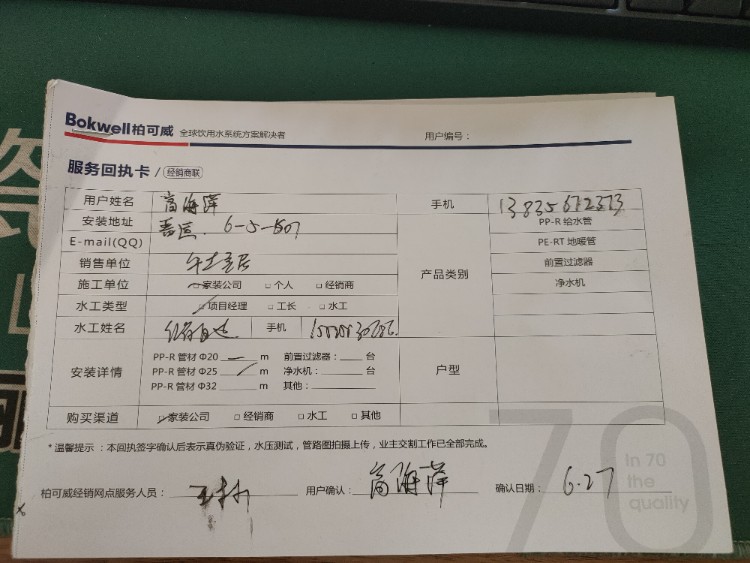 Bokwell柏可威 全球饮用水系统方案解决者 用户编号：
服务回执卡 / 经销商联
用户姓名 高海萍 手机
安装地址 6-5-1507 PP-R 给水管
E-mail(QQ) PE-RT 地暖管
销售单位 产品类别 前置过滤器
施工单位 □家装公司 □个人 □经销商 净水机
水工类型 □项目经理 □工长 □水工
水工姓名 手机
安装详情 PP-R 管材 Φ20 m 前置过滤器： 台 户型
PP-R 管材 Φ25 m 净水机： 台
PP-R 管材 Φ32 m 其他：
购买渠道 □家装公司 □经销商 □水工 □其他
*温馨提示：本回执签字确认后表示真伪验证，水压测试，管路图拍摄上传，业主交割工作已全部完成。
70
In 70
the
quality
柏可威经销网点服务人员： 用户确认： 高海萍 确认日期： 6.27